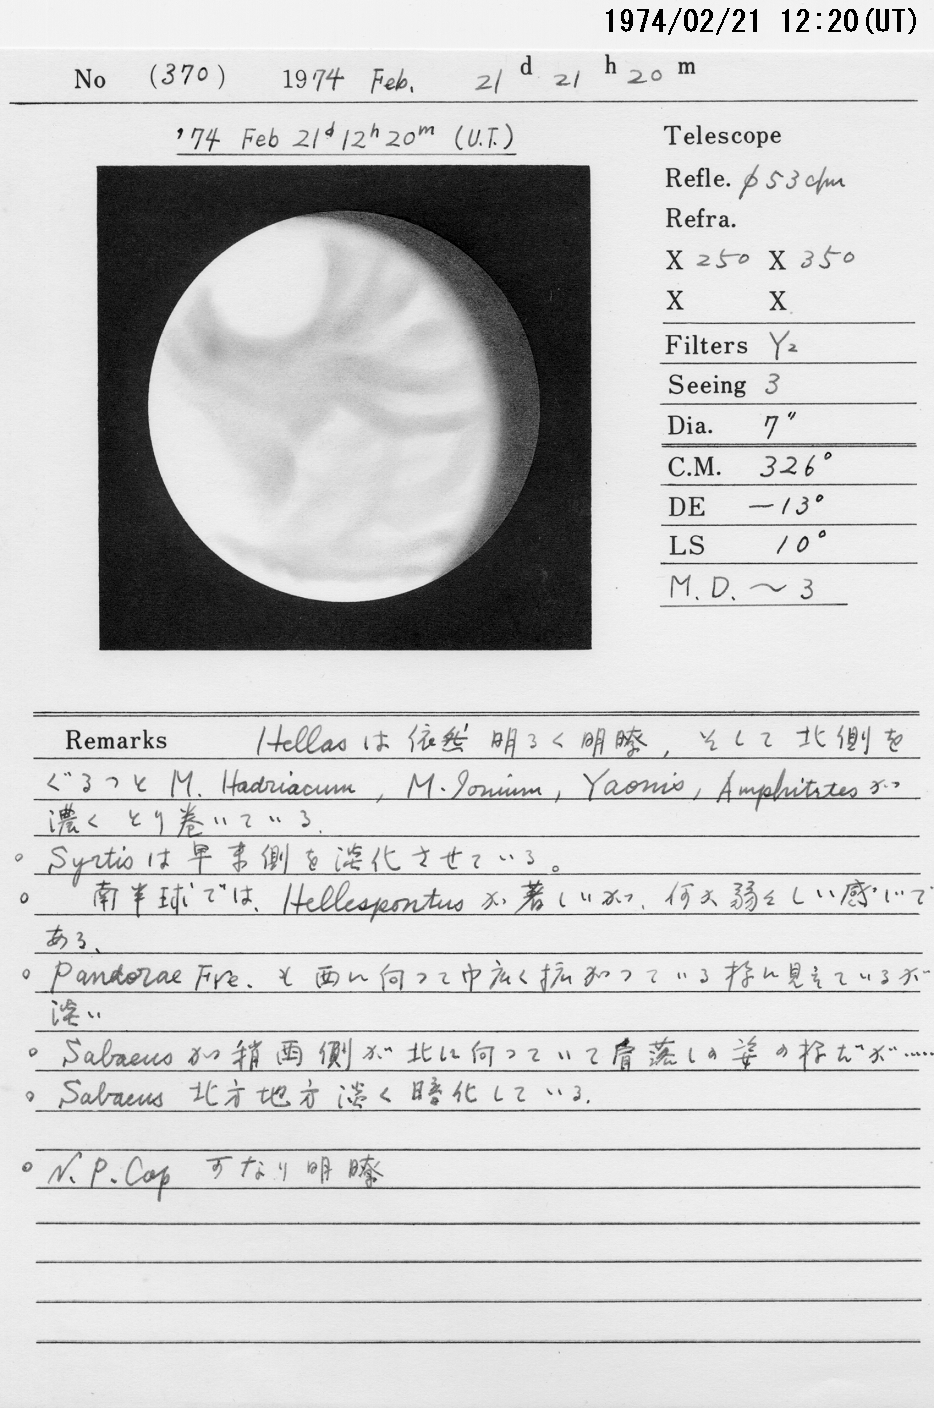 1974/02/21 12:20(UT)
No (370) 1974 Feb. 21 d 21 h 20 m
'74 Feb 21d 12h 20m (U.T.)
Telescope
Refle. φ53cm
Refra.
X 250 X 350
X X
Filters Y2
Seeing 3
Dia. 7"
C.M. 326°
DE -13°
LS 10°
M.D. ~ 3
Remarks Hellasは依然明るく明瞭, そして北側を
ぐるっと M. Hadriacum, M. Ionium, Yaonis, Amphitritesが
濃くとり巻いている.
○ Syrtisは早東側を淡化させている。
○ 南半球では、Hellespontusが著しいが、何久弱々しい感じで
ある、
○ Pandorae Fre. も西に向って巾広く拡がっている様に見えているが
淡い
○ Sabaeusが稍西側が北に向っていて肩落しの姿の様だが……
○ Sabaeus 北方地方淡く暗化している.
○ N.P.Cap 可なり明瞭